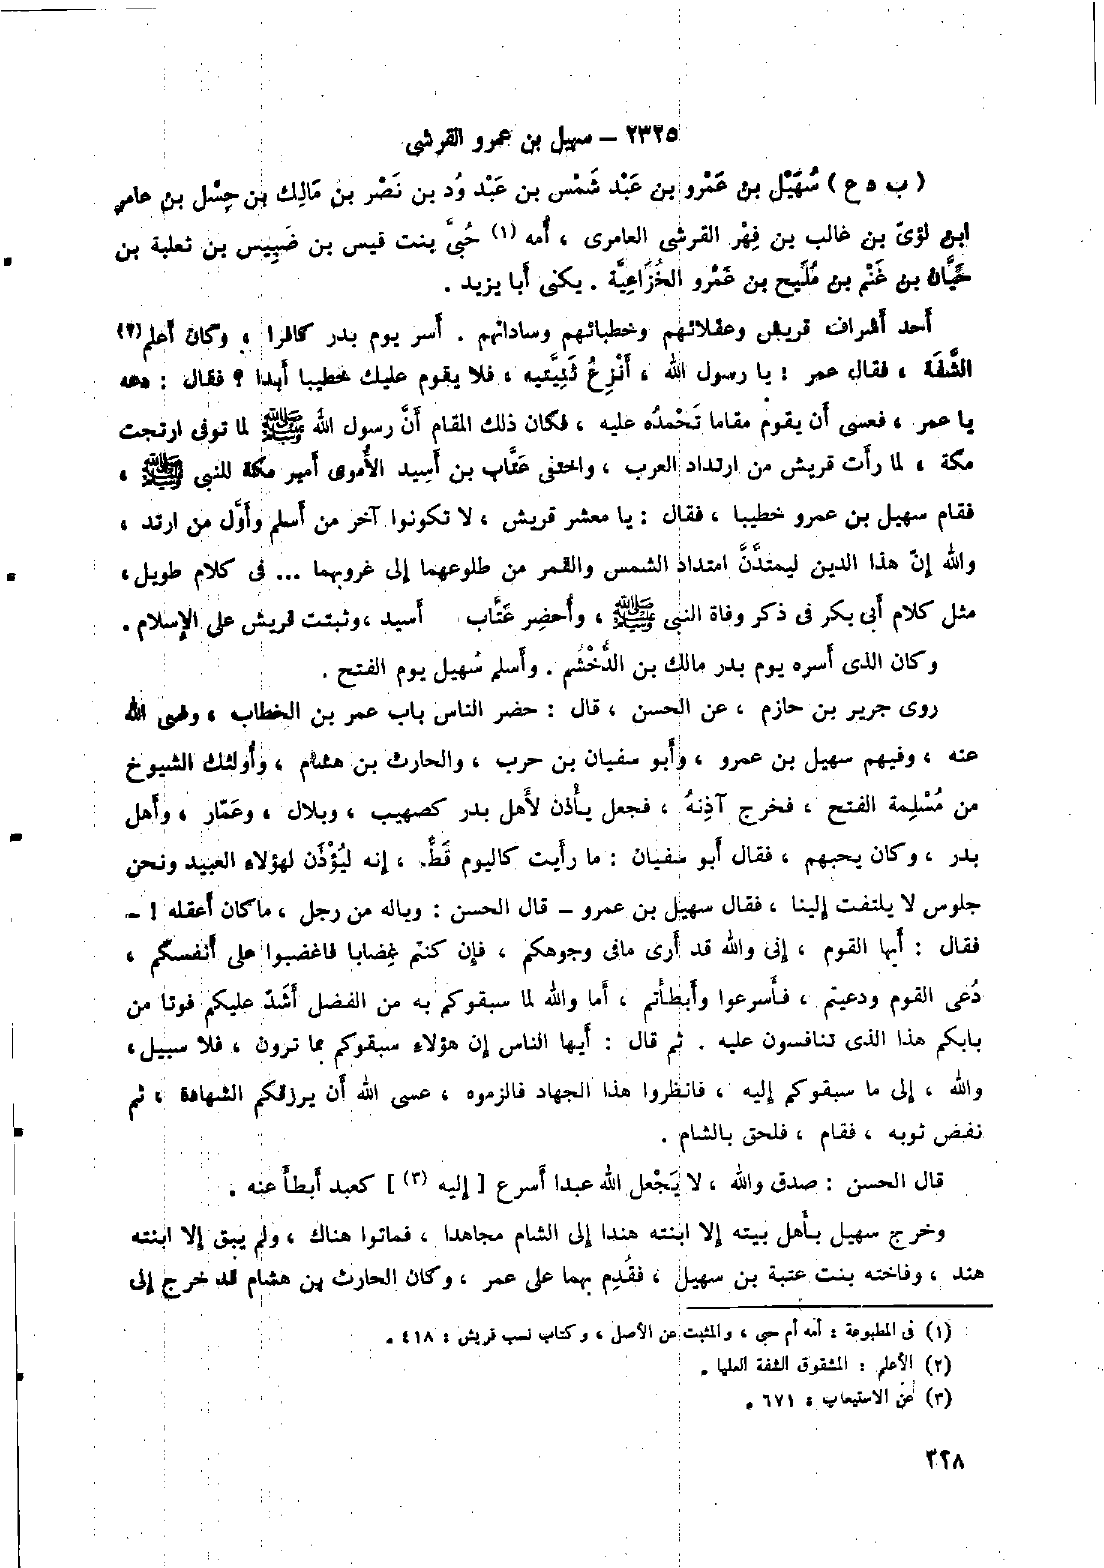 ٢٣٢٥ – سهيل بن عمرو القرشى
( ب د ع ) سُهَيْل بن عَمْرو بن عَبْد شَمْس بن عَبْد وُد بن نَصْر بن مَالِك بن حِسْل بن عامر
ابن لؤىّ بن غالب بن فِهْر القرشى العامرى ، أمه (١) حُبَّى بنت قيس بن ضَبِيس بن ثعلبة بن
حَيَّان بن غَنْم بن مُلَيح بن عَمْرو الخُزَاعِيَّة . يكنى أبا يزيد .
أحد أشراف قريش وعقلائهم وخطبائهم وساداتهم . أسر يوم بدر كافرا ، وكان أعلم (٢)
الشَّفَة ، فقال عمر : يا رسول الله ، أَنْزِعُ ثَنِيَّتيه ، فلا يقوم عليك خطيبا أبدا ؟ فقال : دعه
يا عمر ، فعسى أن يقوم مقاما تَحْمَدُه عليه ، فكان ذلك المقام أنَّ رسول الله ﷺ لما توفى ارتجت
مكة ، لما رأت قريش من ارتداد العرب ، واختفى عَتَّاب بن أَسِيد الأُموى أمير مكة للنبى ﷺ ،
فقام سهيل بن عمرو خطيبا ، فقال : يا معشر قريش ، لا تكونوا آخر من أسلم وأوَّل من ارتد ،
والله إنّ هذا الدين ليمتدَّنَّ امتداد الشمس والقمر من طلوعهما إلى غروبهما ... فى كلام طويل ،
مثل كلام أبى بكر فى ذكر وفاة النبى ﷺ ، وأُحضِر عَتَّاب أسيد ، وثبتت قريش على الإسلام .
وكان الذى أسره يوم بدر مالك بن الدُّخْشُم . وأسلم سُهيل يوم الفتح .
روى جرير بن حازم ، عن الحسن ، قال : حضر الناس باب عمر بن الخطاب ، رضى الله
عنه ، وفيهم سهيل بن عمرو ، وأبو سفيان بن حرب ، والحارث بن هشام ، وأُولئك الشيوخ
من مُسْلِمة الفتح ، فخرج آذِنهُ ، فجعل يأْذن لأَهل بدر كصهيب ، وبلال ، وعَمّار ، وأهل
بدر ، وكان يحبهم ، فقال أبو سفيان : ما رأيت كاليوم قَطُّ ، إنه لَيُؤْذَن لهؤلاء العبيد ونحن
جلوس لا يلتفت إلينا ، فقال سهيل بن عمرو – قال الحسن : وياله من رجل ، ماكان أعقله ! –
فقال : أيها القوم ، إنى والله قد أرى مافى وجوهكم ، فإن كنتم غِضابا فاغضبوا على أنفسكم ،
دُعى القوم ودعيتم ، فأسرعوا وأبطأتم ، أما والله لما سبقوكم به من الفضل أشدّ عليكم فوتا من
بابكم هذا الذى تنافسون عليه . ثم قال : أيها الناس إن هؤلاء سبقوكم بما ترون ، فلا سبيل ،
والله ، إلى ما سبقوكم إليه ، فانظروا هذا الجهاد فالزموه ، عسى الله أن يرزقكم الشهادة ، ثم
نفض ثوبه ، فقام ، فلحق بالشام .
قال الحسن : صدق والله ، لا يَجْعل الله عبدا أسرع [ إليه (٣) ] كعبد أبطأ عنه .
وخرج سهيل بأهل بيته إلا ابنته هندا إلى الشام مجاهدا ، فماتوا هناك ، ولم يبق إلا ابنته
هند ، وفاخته بنت عتبة بن سهيل ، فقُدِم بهما على عمر ، وكان الحارث بن هشام قد خرج إلى
(١) فى المطبوعة : أمه أم حبى ، والمثبت عن الأصل ، وكتاب نسب قريش : ٤١٨ .
(٢) الأعلم : المشقوق الشفة العليا .
(٣) عن الاستيعاب : ٦٧١ .
٣٢٨